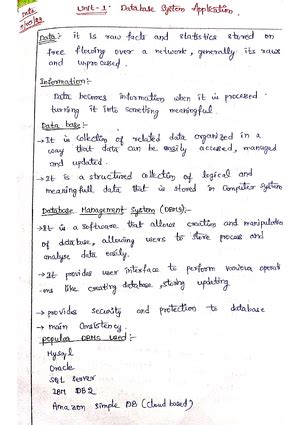 Unit - 1 : Database System Application.
Date
Data :- it is raw facts and statistics stored on
free flowing over a network, generally its raws
and unprocessed.
Information:-
Data becomes information when it is processed
turning it into something meaningful.
Data base :-
→ It is collection of related data organized in a
way that data can be easily accused, managed
and updated.
→ It is a structured collection of logical and
meaningfull data that is stored in Computer System
Database Management System (DBMS):-
→ It is a software that allows creation and manipulation
of database, allowing users to store process and
analyse data easily.
→ It provides user interface to perform various operati
ons like creating database, storing updating.
→ provides security and protection to database
→ main Consistency.
popular DBMS used :-
MySql
Oracle
SQL Server
IBM DB2
Amazon Simple DB (cloud based)